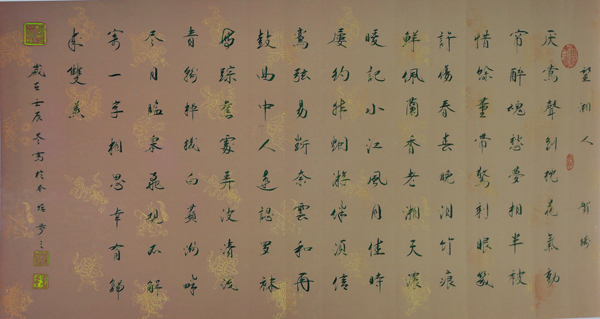 望湘人 賀鑄
厌鶯聲到枕花氣動
帘醉魂愁夢相半被
惜餘薰帶驚剩眼幾
許傷春春晚淚竹痕
鮮佩蘭香老湘天濃
暖記小江風月佳時
屢約非烟游伴須信
鸞弦易斷奈雲和再
鼓曲中人遠認羅襪
無踪舊處弄波清淺
青翰棹艤白蘋洲畔
盡目臨皋飛觀不解
寄一字相思幸有歸
來雙燕
歲在壬辰冬寫於